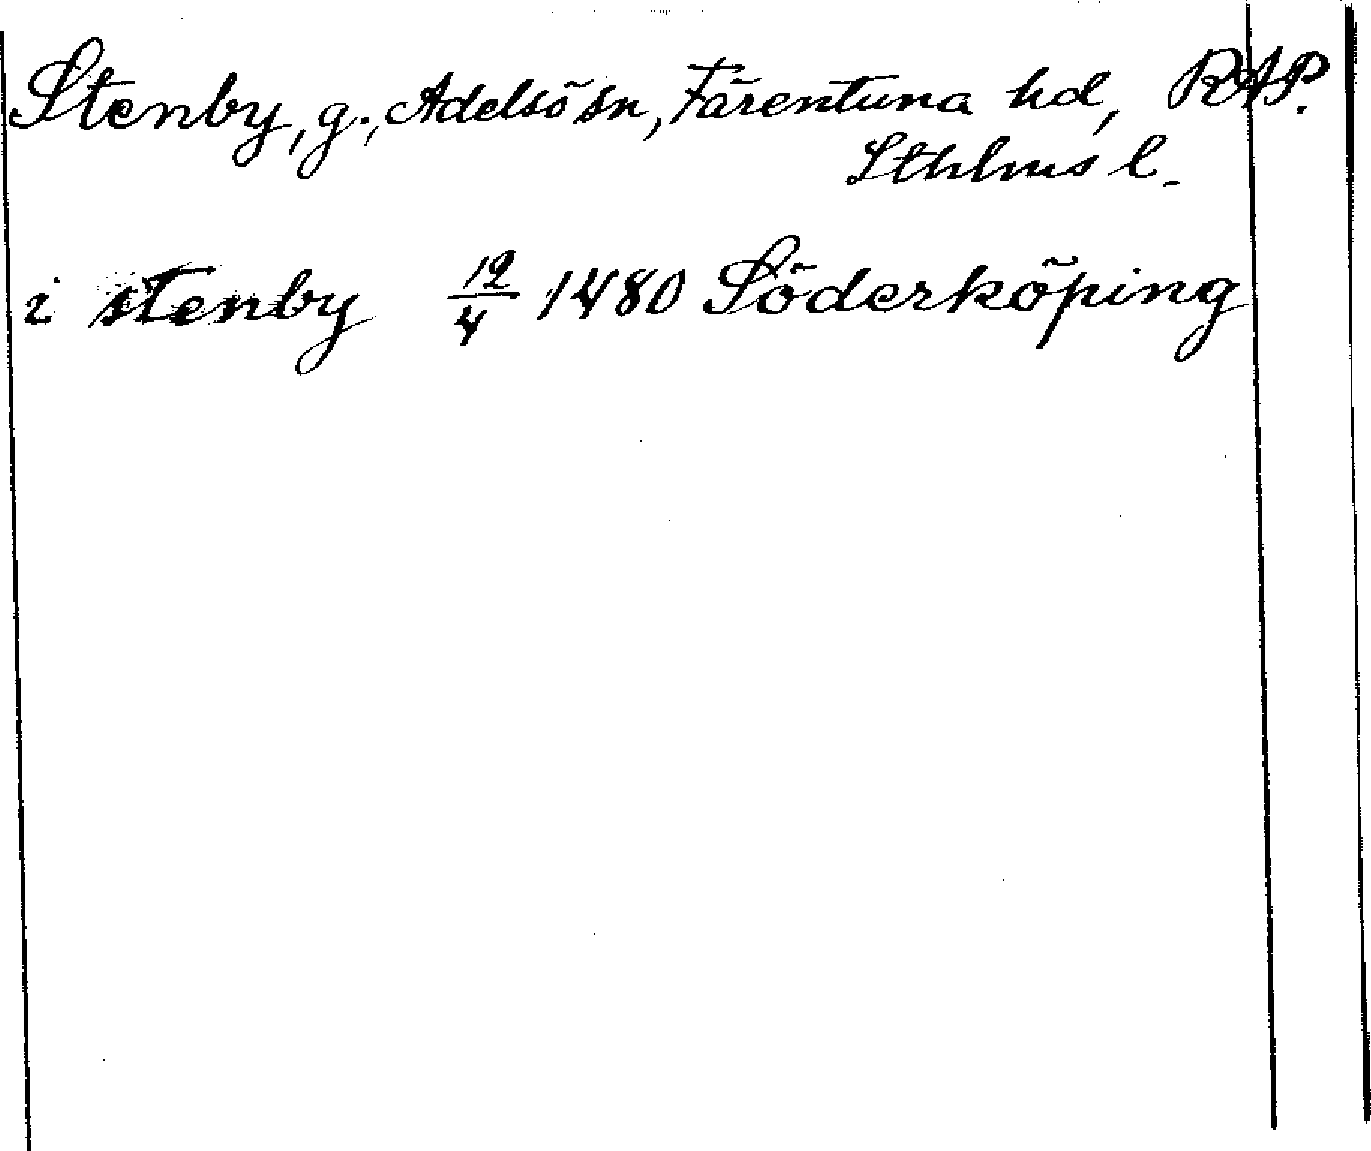 Stenby, g., Adelsö sn, Färentuna hd, RAP.
Sthlms l.
i stenby 12/4 1480 Söderköping